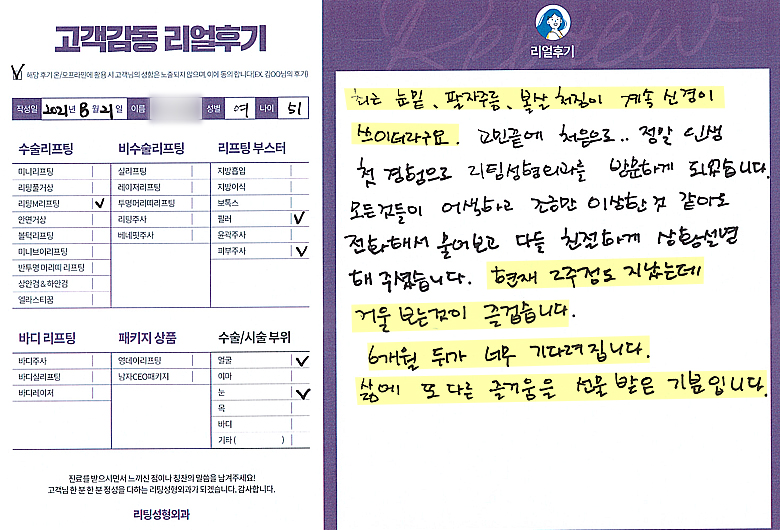 고객감동 리얼후기
해당 후기 온/오프라인에 활용 시 고객님의 성함은 노출되지 않으며, 이에 동의 합니다(EX. 김OO님의 후기)
작성일 2021년 8월 21일 이름 성별 여 나이 51
수술리프팅
미니리프팅
리팅풀거상
리팅M리프팅 ✓
안면거상
볼턱리프팅
미니브이리프팅
반투명 머리띠 리프팅
상안검 & 하안검
엘라스티꿈
비수술리프팅
실리프팅
레이저리프팅
투명머리띠리프팅
리팅주사
베네핏주사
리프팅 부스터
지방흡입
지방이식
보톡스
필러 ✓
윤곽주사
피부주사 ✓
바디 리프팅
바디주사
바디실리프팅
바디레이저
패키지 상품
영데이리프팅
남자CEO패키지
수술/시술 부위
얼굴 ✓
이마
눈 ✓
목
바디
기타 ( )
진료를 받으시면서 느끼신 점이나 칭찬의 말씀을 남겨주세요!
고객님 한 분 한 분 정성을 다하는 리팅성형외과가 되겠습니다. 감사합니다.
리팅성형외과
Review
리얼후기
최근 눈밑, 팔자주름, 볼살 처짐이 계속 신경이
쓰이더라구요. 고민끝에 처음으로.. 정말 인생
첫 경험으로 리팅성형외과를 방문하게 되었습니다.
모든것들이 어색하고 조금만 이상한것 같아도
전화해서 물어보고 다들 친절하게 상황설명
해 주셨습니다. 현재 2주정도 지났는데
거울 보는것이 즐겁습니다.
6개월 뒤가 너무 기다려집니다.
삶에 또 다른 즐거움을 선물 받은 기분입니다.